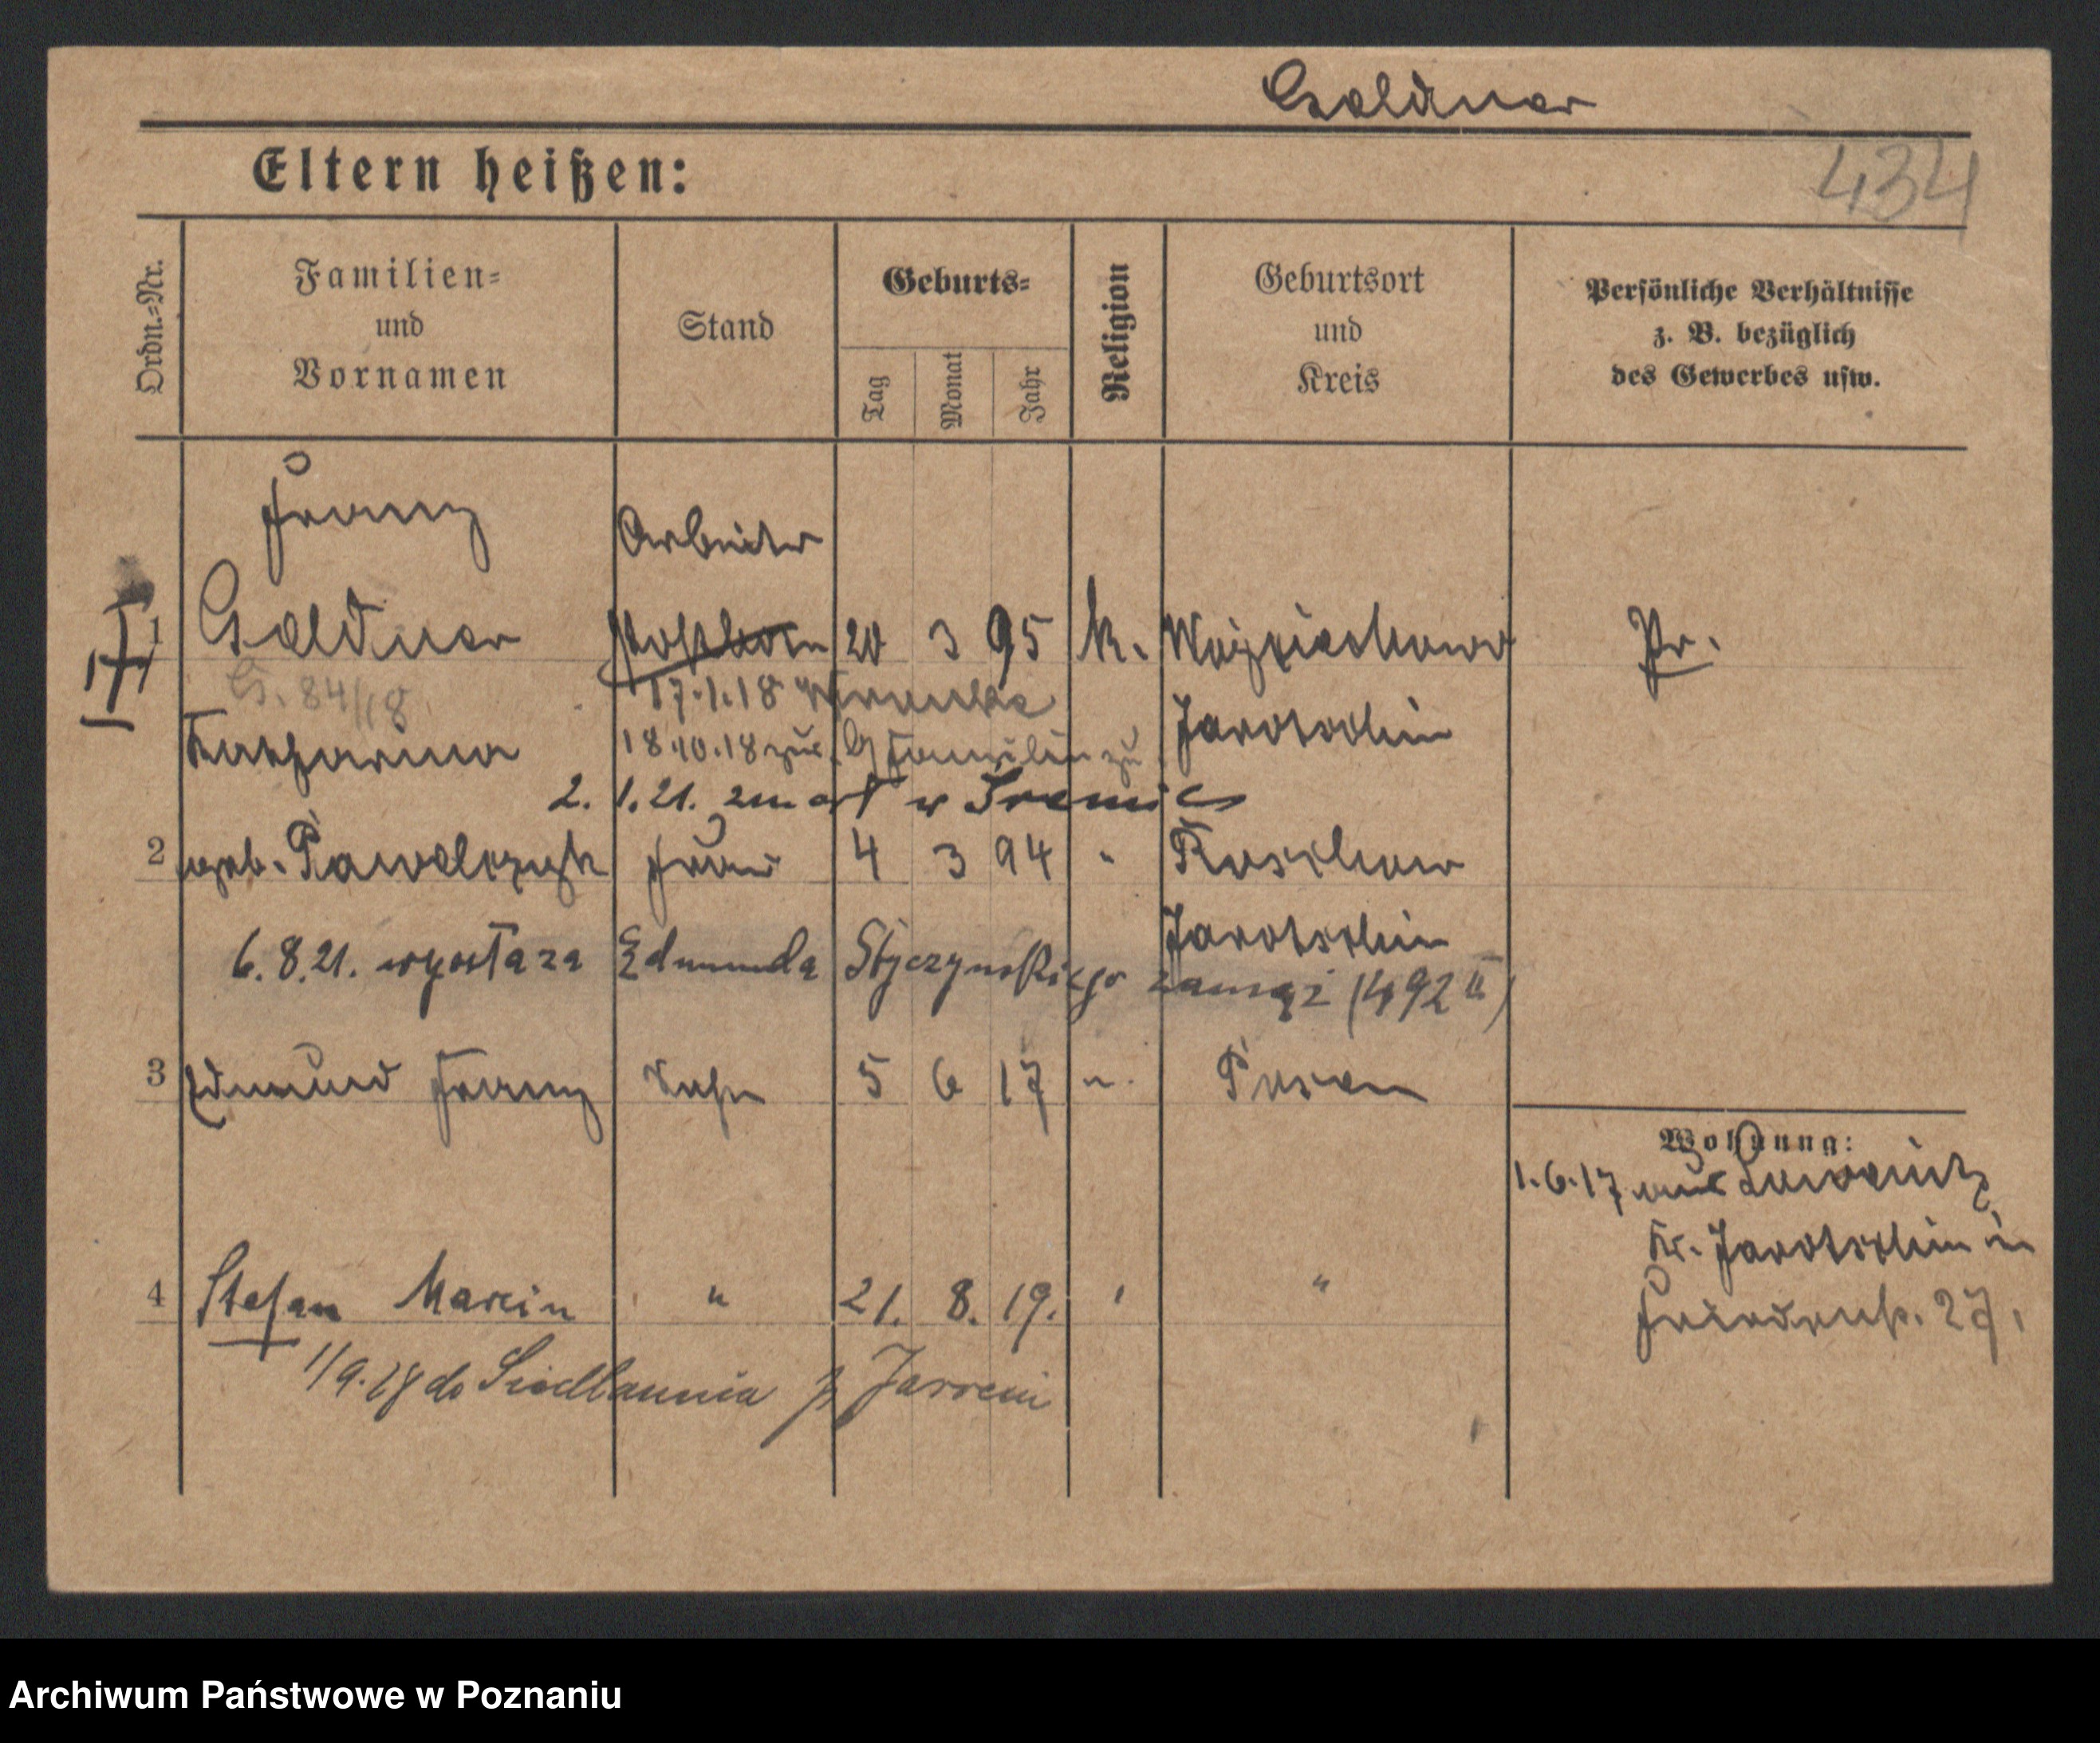 Goldner
Eltern heißen:
434
Ordn.-Nr.
Familien-
und
Vornamen
Stand
Geburts-
Tag
Monat
Jahr
Religion
Geburtsort
und
Kreis
Persönliche Verhältnisse
z. B. bezüglich
des Gewerbes usw.
Franz
Arbeiter
1 Goldner 20 3 95 k. Pr.
G. 84/18
17.1.18
Jarotschin
Katharina
18.10.18 zur Familie zu
2. 1.21. zmarł w Śremie
2 geb. Pawelczyk Frau 4 3 94 " Roschow
Jarotschin
6.8.21. wyszła za Edmunda Styczyńskiego zamąż (492 II)
3 Edmund Franz Sohn 5 6 17 " Posen
Wohnung:
1.6.17 aus
Kr. Jarotschin in
27,
4 Stefan Marcin " 21. 8. 19. " "
1/9.28 do p. Jarocin
Archiwum Państwowe w Poznaniu